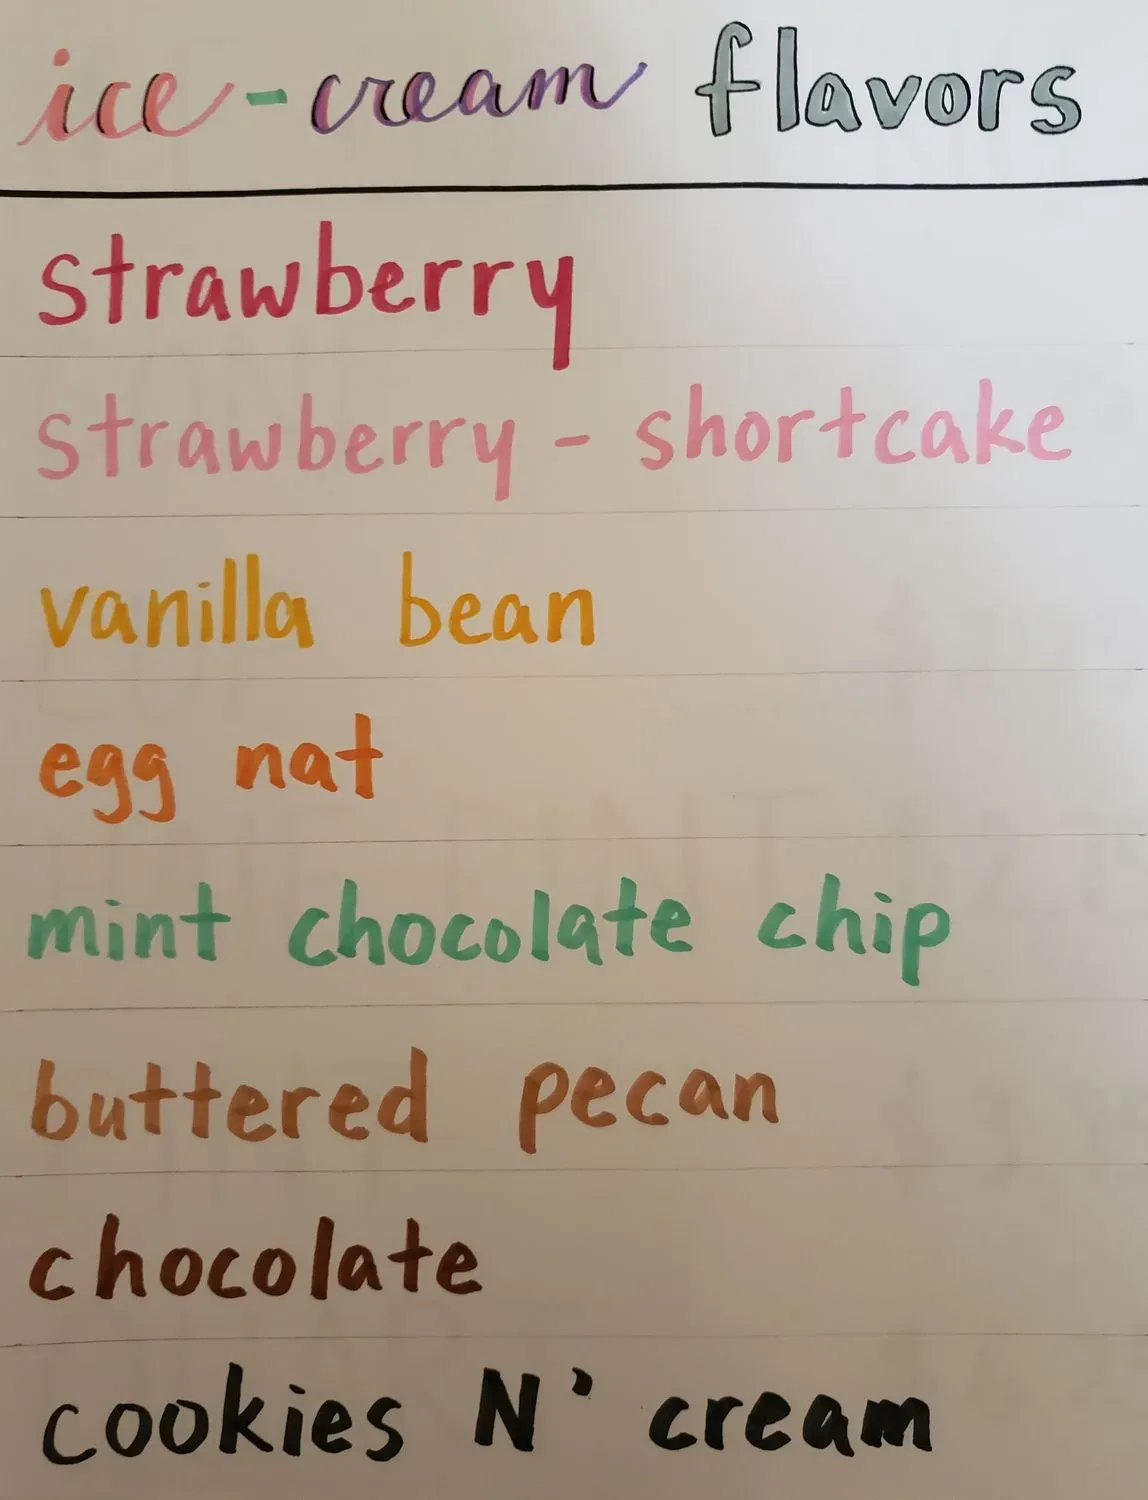 ice-cream flavors
strawberry
strawberry - shortcake
vanilla bean
egg nat
mint chocolate chip
buttered pecan
chocolate
cookies N' cream